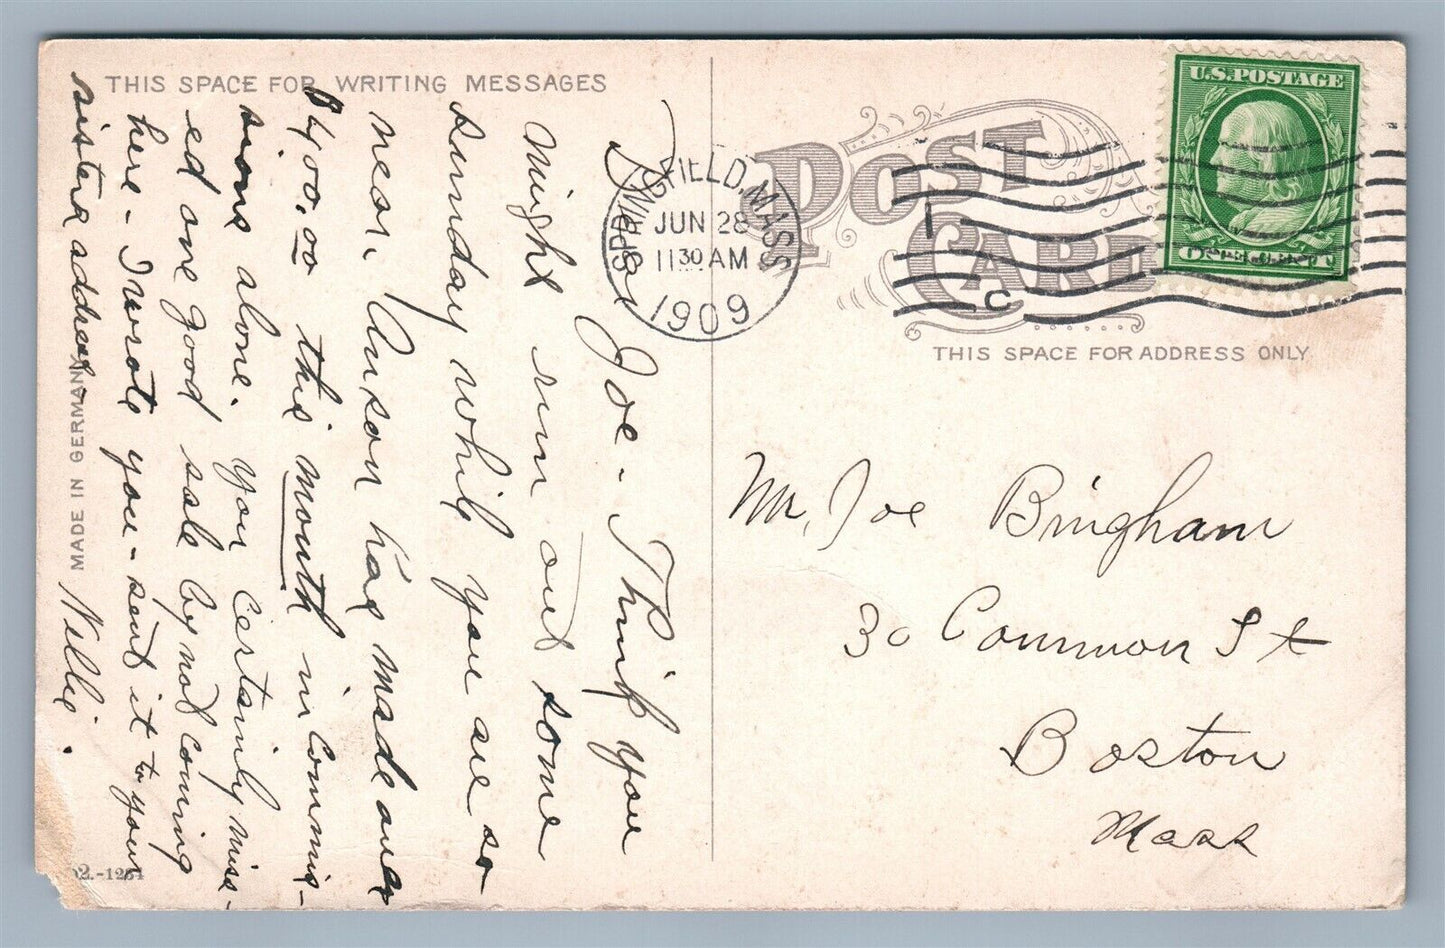 THIS SPACE FOR WRITING MESSAGES
Dear Joe - Think you
might run out some
Sunday while you are so
near. Anson has made over
$400.00 this month in Commis-
sions alone. You Certainly miss-
ed one good sale by not coming
here - I wrote you - sent it to your
sisters address -
Nellie.
MADE IN GERMANY
2.-1264
SPRINGFIELD, MASS
JUN 28
11 30 AM
1909
1
C
POST CARD
U.S. POSTAGE
ONE CENT
THIS SPACE FOR ADDRESS ONLY
Mr. Joe Bingham
30 Common St
Boston
Mass